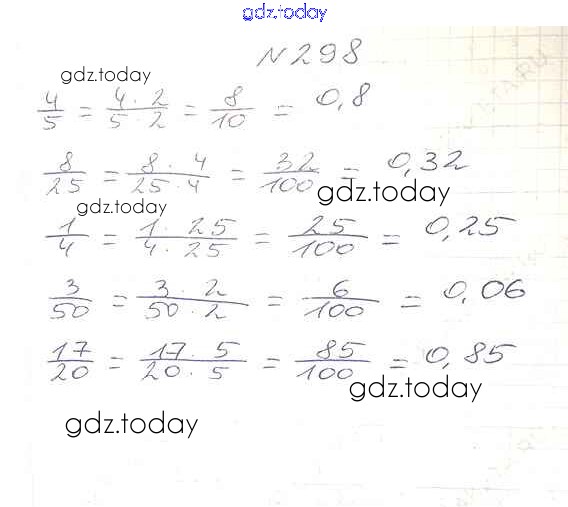 gdz.today
N 298
gdz.today
4/5 = 4 · 2/5 · 2 = 8/10 = 0,8
8/25 = 8 · 4/25 · 4 = 32/100 = 0,32
gdz.today
gdz.today
1/4 = 1 · 25/4 · 25 = 25/100 = 0,25
3/50 = 3 · 2/50 · 2 = 6/100 = 0,06
17/20 = 17 · 5/20 · 5 = 85/100 = 0,85
gdz.today
gdz.today